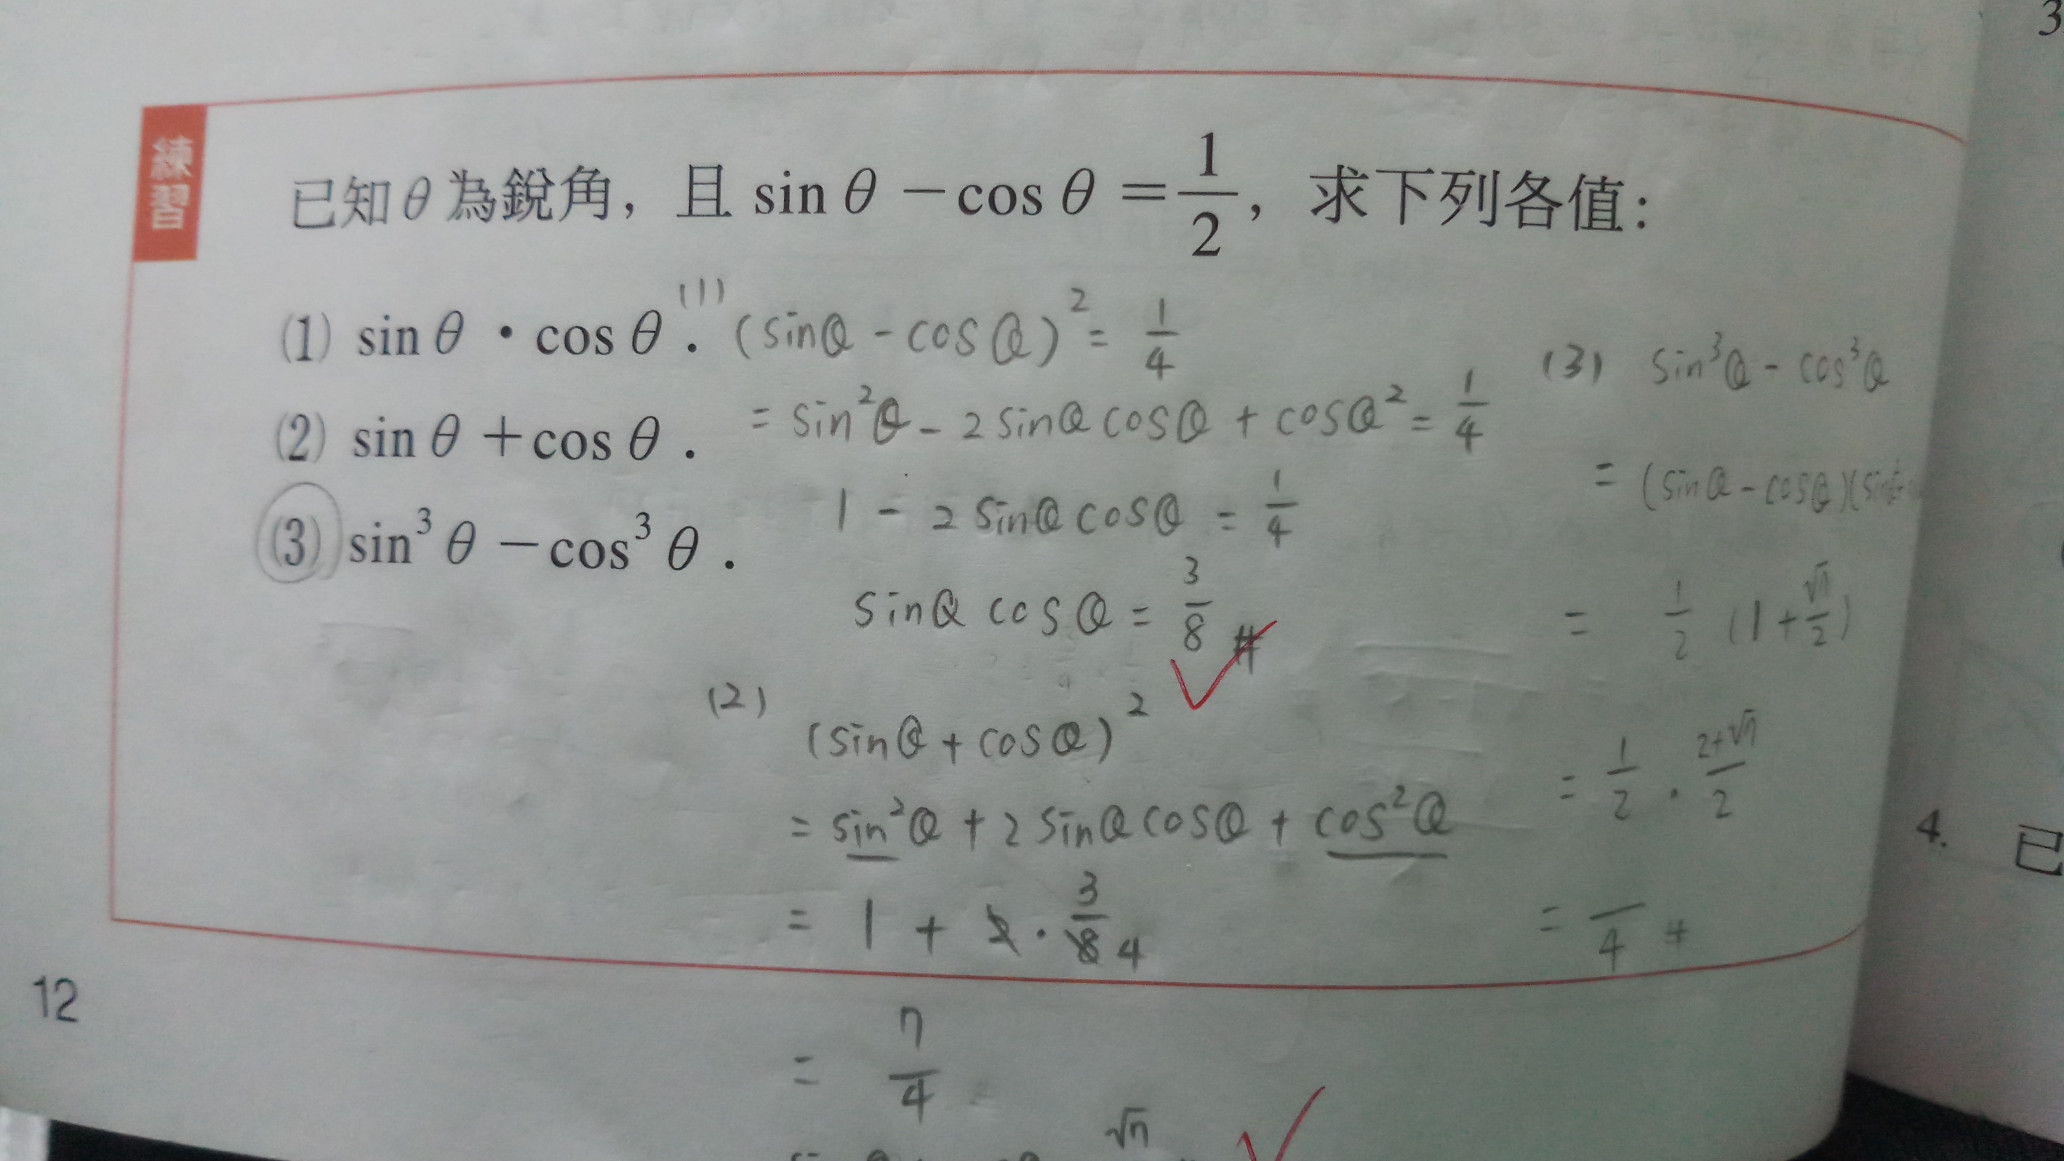 練習
已知θ為銳角，且 sin θ －cos θ ＝1/2，求下列各值：
(1) sin θ・cos θ．
(2) sin θ ＋cos θ．
(3) sin³ θ －cos³ θ．
(1) (sinθ - cosθ)² = 1/4
= sin²θ - 2 sinθ cosθ + cosθ² = 1/4
1 - 2 sinθ cosθ = 1/4
sinθ cosθ = 3/8 #
(2) (sinθ + cosθ)²
= sin²θ + 2 sinθ cosθ + cos²θ
= 1 + 2 · 3/8 4
= 7/4
√7
(3) sin³θ - cos³θ
= (sinθ - cosθ)(sin
= 1/2 (1 + √7/2)
= 1/2 · 2+√7/2
= /4 #
12
3
4. 已